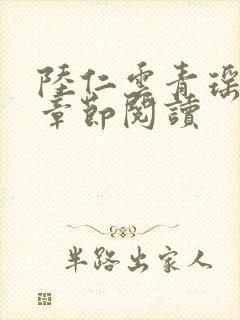 陸仁雲青瑶
章節閱讀
半路出家人